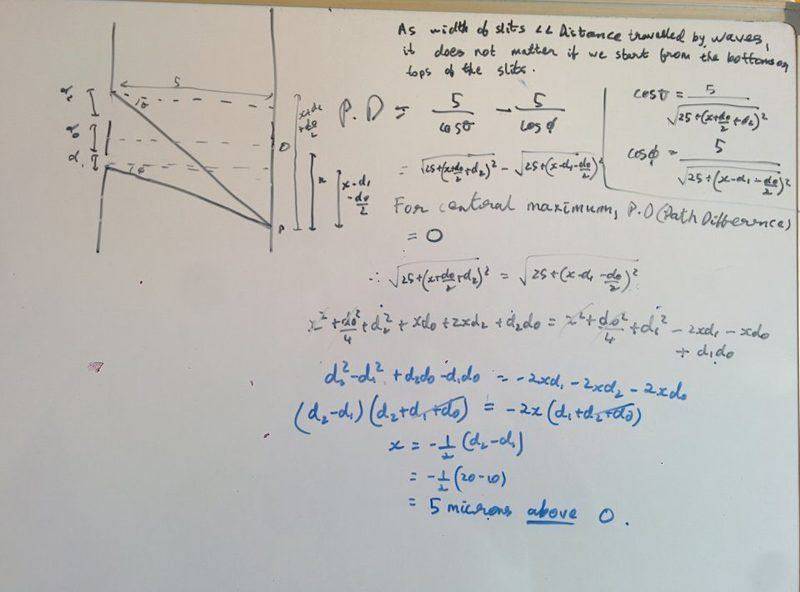 As width of slits << Distance travelled by waves,
it does not matter if we start from the bottoms or
tops of the slits.
5
d₂
θ
d₀
d₁
φ
x+d₂
+d₀/2
O
x
x-d₁
-d₀/2
P
P.D = 5/cosθ - 5/cosϕ
= √(25+(x+d₀/2+d₂)²) - √(25+(x-d₁-d₀/2)²)
cosθ = 5/√(25+(x+d₀/2+d₂)²)
cosϕ = 5/√(25+(x-d₁-d₀/2)²)
For central maximum, P.D (Path Difference)
= 0
∴ √(25+(x+d₀/2+d₂)²) = √(25+(x-d₁-d₀/2)²)
x²+d₀²/4+d₂²+xd₀+2xd₂+d₂d₀ = x²+d₀²/4+d₁²-2xd₁-xd₀
+d₁d₀
d₂²-d₁²+d₂d₀-d₁d₀ = -2xd₁-2xd₂-2xd₀
(d₂-d₁)(d₂+d₁+d₀) = -2x(d₁+d₂+d₀)
x = -1/2(d₂-d₁)
= -1/2(20-10)
= 5 microns above O.